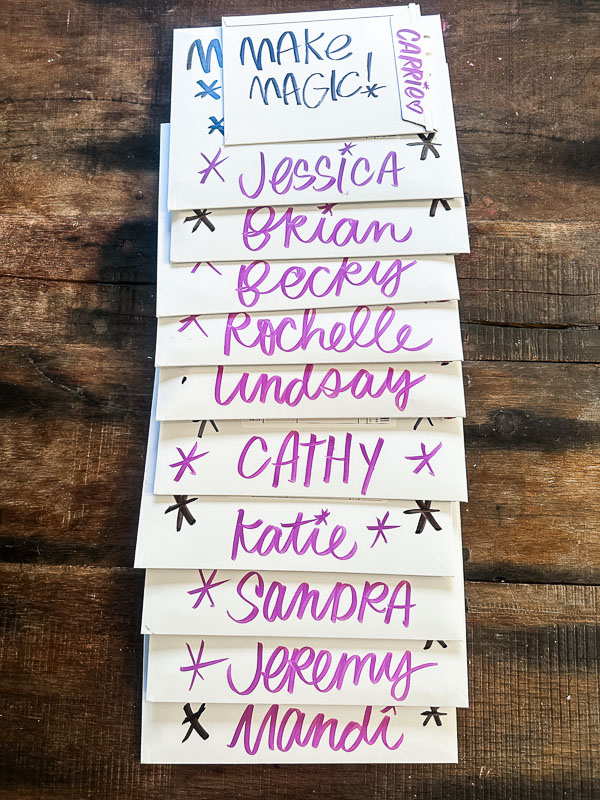 MAKE
MAGIC!
CARRIE
Jessica
Brian
Becky
Rochelle
Lindsay
CATHY
Katie
SANDRA
Jeremy
Mandi